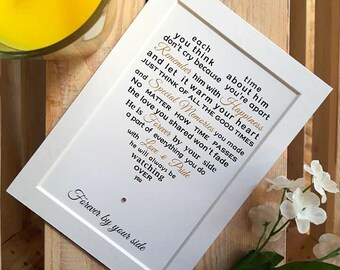 each time
you think about him
don't cry because you're apart
Remember him with Happiness
and let it warm your heart
JUST THINK OF ALL THE GOOD TIMES
and Special Memories you made
NO MATTER HOW TIME PASSES
the love you shared won't fade
He is Forever by your side
a part of everything you do
with Love & Pride
he will always be
watching
OVER
you
Forever by your side